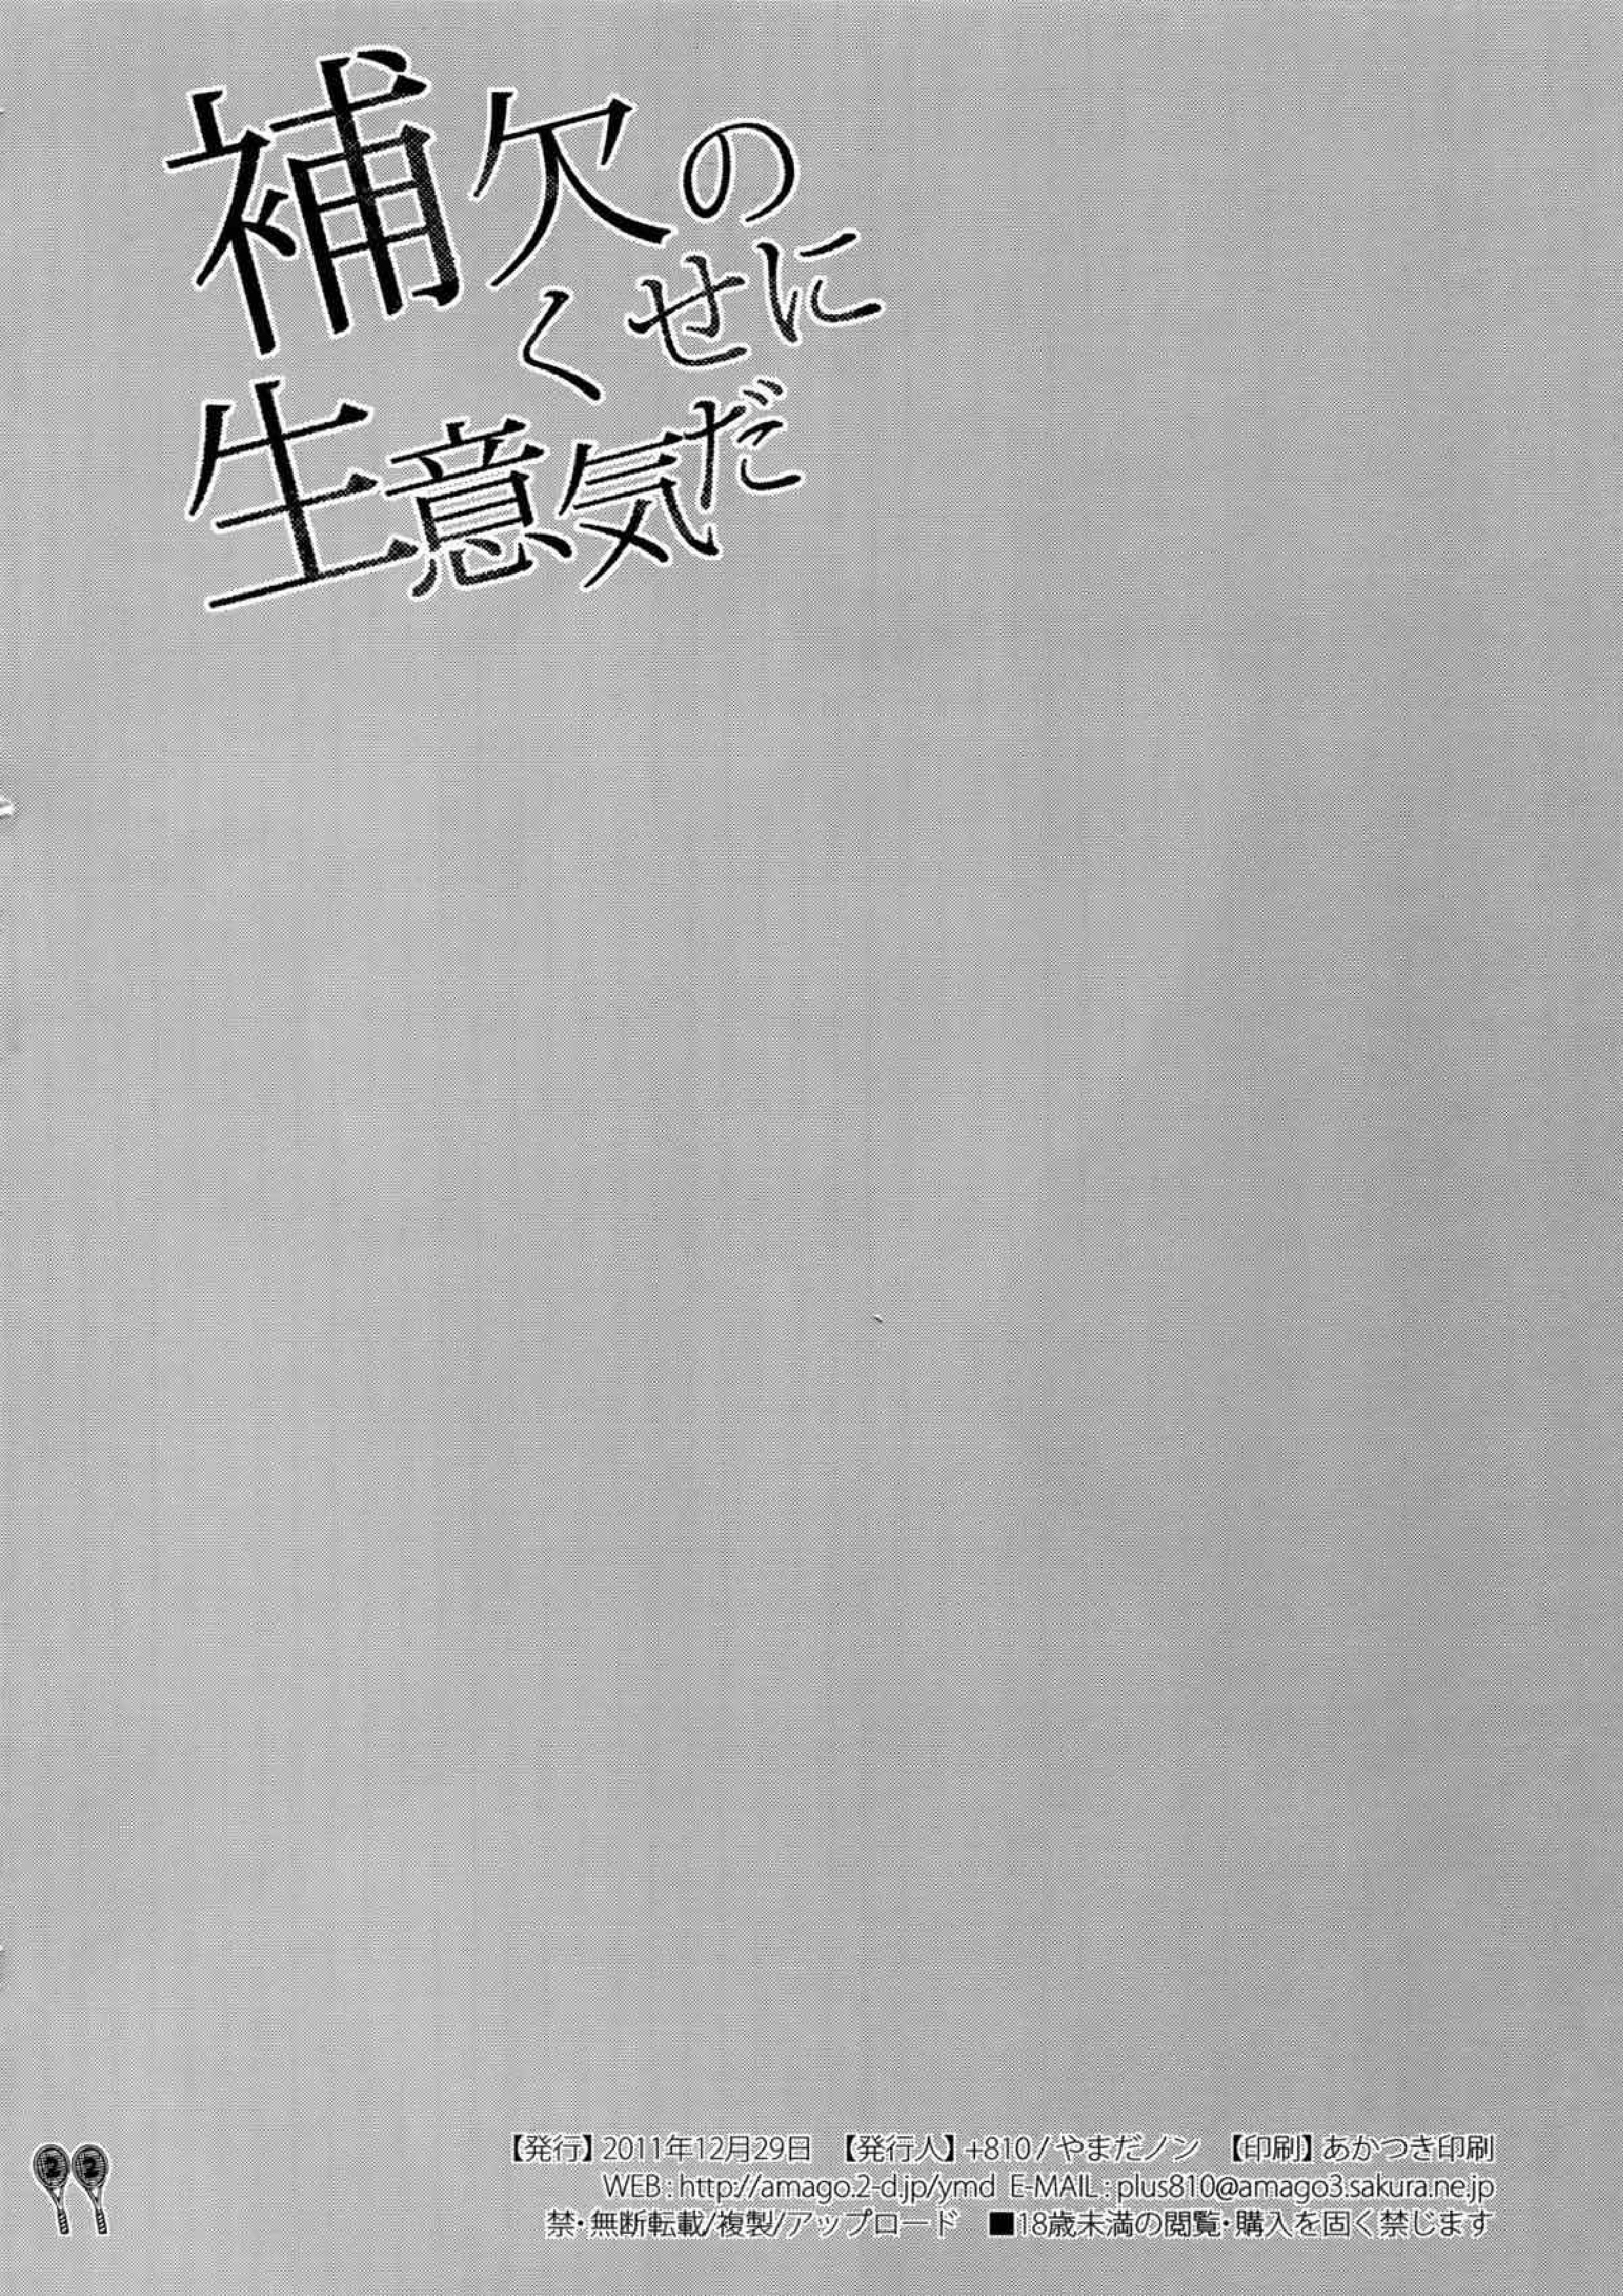 補欠の
くせに
生意気だ
【発行】2011年12月29日　【発行人】+810/やまだノン　【印刷】あかつき印刷
WEB:http://amago.2-d.jp/ymd E-MAIL:plus810@amago3.sakura.ne.jp
禁・無断転載/複製/アップロード　■18歳未満の閲覧・購入を固く禁じます
22